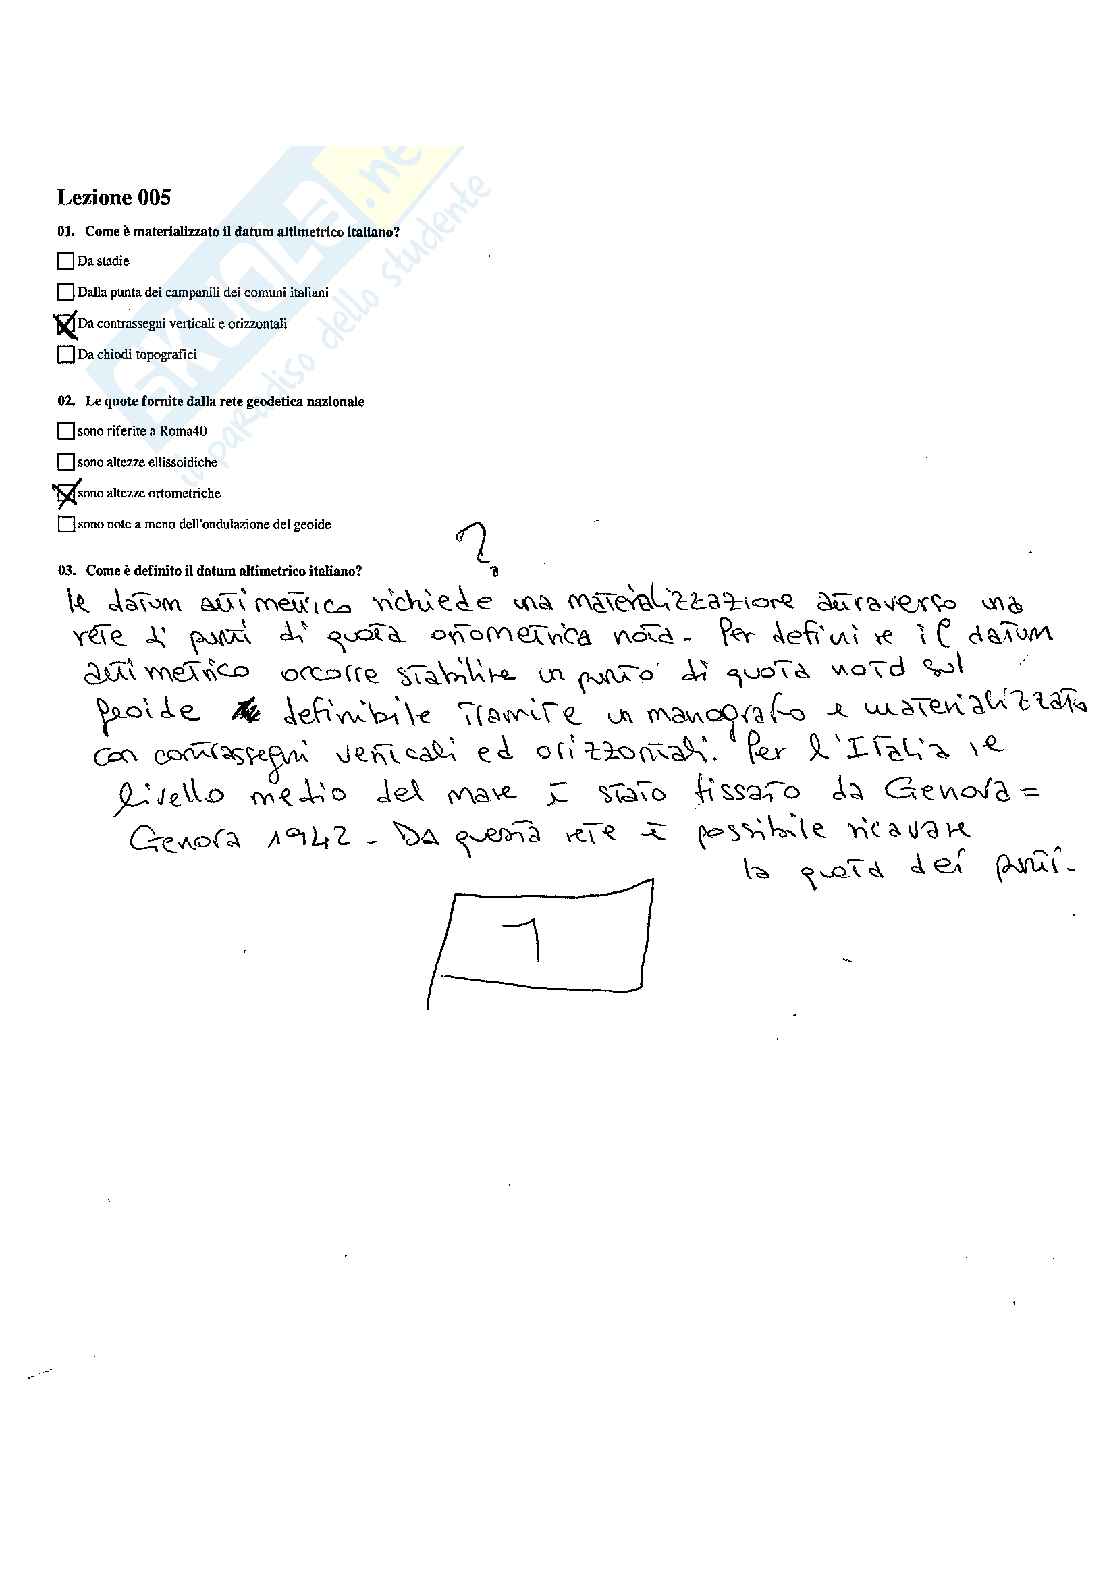 SKUOLA.net
il paradiso dello studente
Lezione 005
01. Come è materializzato il datum altimetrico italiano?
Da stadie
Dalla punta dei campanili dei comuni italiani
Da contrassegni verticali e orizzontali
Da chiodi topografici
02. Le quote fornite dalla rete geodetica nazionale
sono riferite a Roma40
sono altezze ellissoidiche
sono altezze ortometriche
sono note a meno dell'ondulazione del geoide
?
03. Come è definito il datum altimetrico italiano?
Il datum altimetrico richiede una materializzazione attraverso una
rete di punti di quota ortometrica nota - Per definire il datum
altimetrico occorre stabilire un punto di quota nota sul
geoide definibile tramite un mareografo e materializzato
con contrassegni verticali ed orizzontali. Per l'Italia il
livello medio del mare è stato fissato da Genova =
Genova 1942 - Da questa rete è possibile ricavare
la quota dei punti -
1